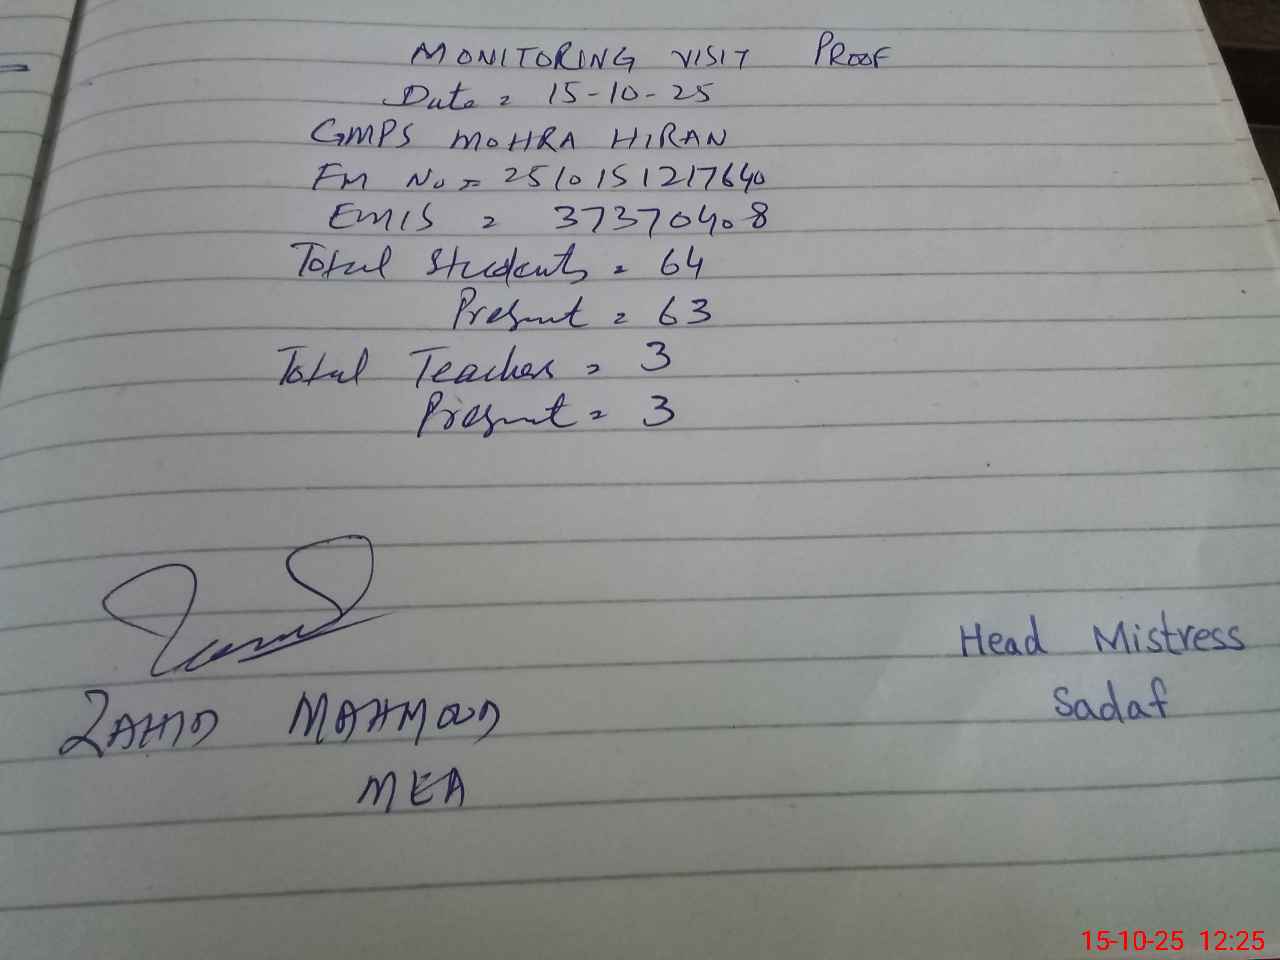 MONITORING VISIT PROOF
Date = 15-10-25
GMPS MOHRA HIRAN
FM No = 2510151217640
EMIS = 37370408
Total Students = 64
Present = 63
Total Teachers = 3
Present = 3
ZAHID MAHMOOD
MEA
Head Mistress
Sadaf
15-10-25 12:25